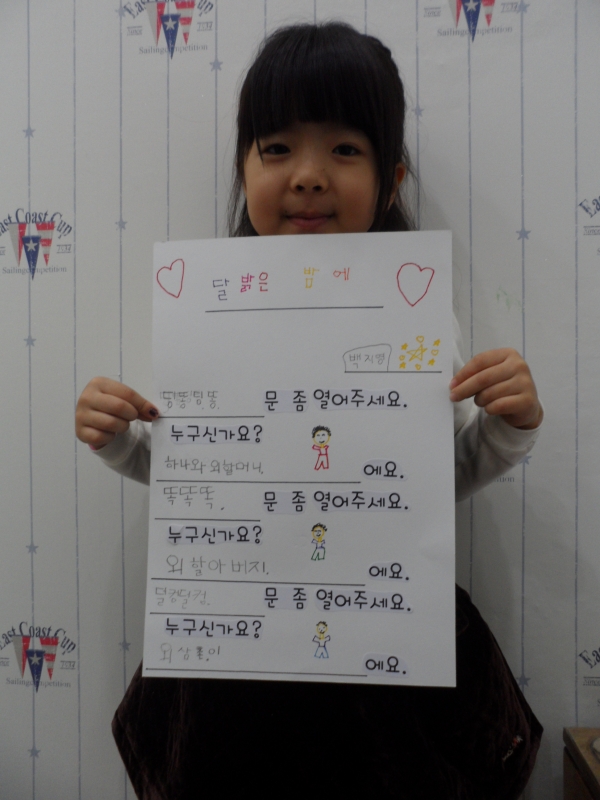 East Coast Cup
Sailing Competition
East Coast Cup
Sailing Competition
달 밝은 밤에
백지영
문 좀 열어주세요.
누구신가요?
하나와 외할머니. 에요.
똑똑똑. 문 좀 열어주세요.
누구신가요?
외할아버지. 에요.
덜컹덜컹. 문 좀 열어주세요.
누구신가요?
에요.
East Coast Cup
Sailing Competition